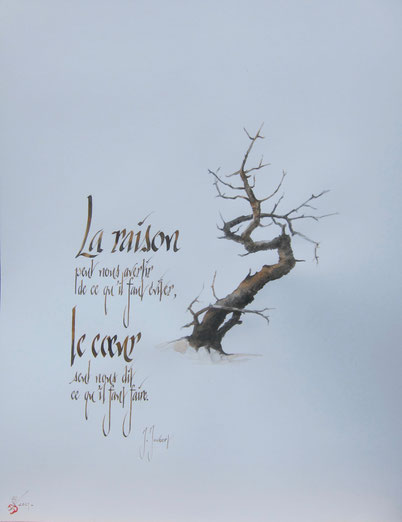 La raison
peut nous avertir
de ce qu'il faut éviter,
le cœur
seul nous dit
ce qu'il faut faire.
J. Joubert